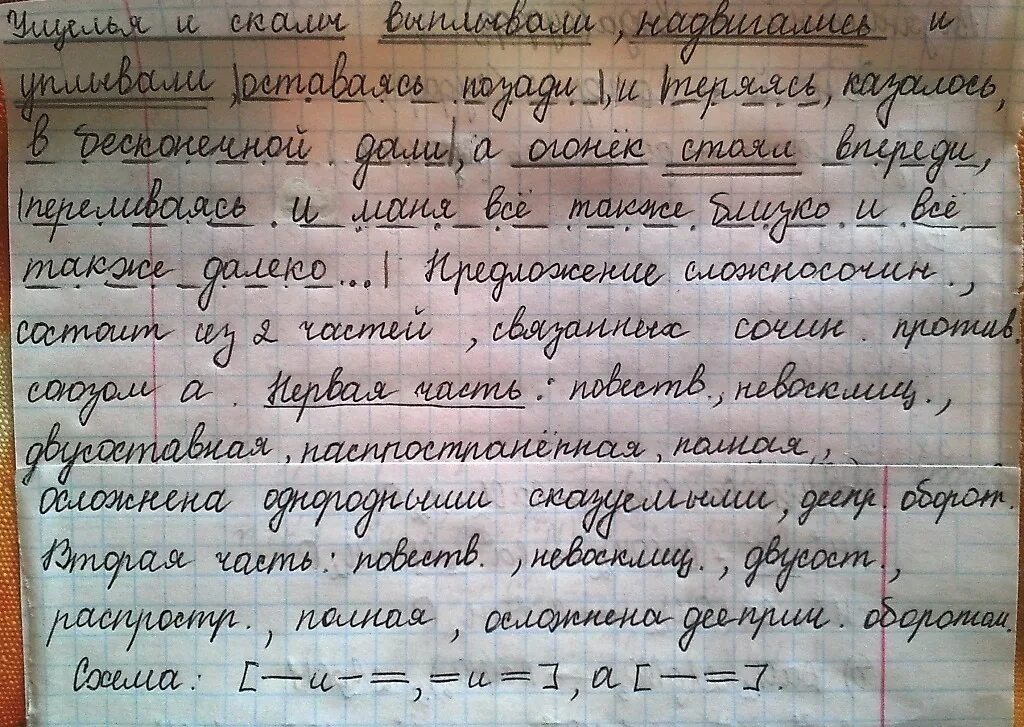 Ущелья и скалы выплывали, надвигались и
уплывали, |оставаясь позади|, и |теряясь, казалось,
в бесконечной дали|, а огонёк стоял впереди,
|переливаясь и маня всё также близко и всё
также далеко...| Предложение сложносочин.,
состоит из 2 частей, связанных сочин. против.
союзом а. Первая часть: повеств., невосклиц.,
двусоставная, распространённая, полная,
осложнена однородными сказуемыми, деепр. оборот.
Вторая часть: повеств., невосклиц., двусост.,
распростр., полная, осложнена дееприч. оборотом.
Схема: [— и — =, = и =], а [— =].